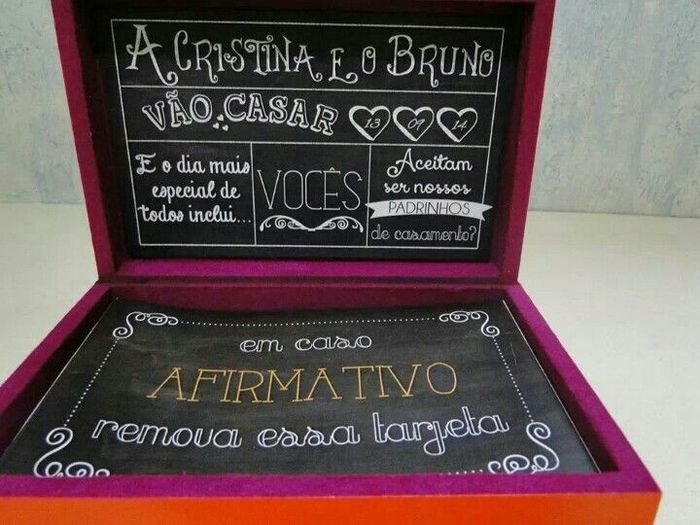 A CRISTINA E O BRUNO
VÃO CASAR 13 07 14
E o dia mais
especial de
todos inclui...
VOCÊS
Aceitam
ser nossos
PADRINHOS
de casamento?
em caso
AFIRMATIVO
remova essa tarjeta